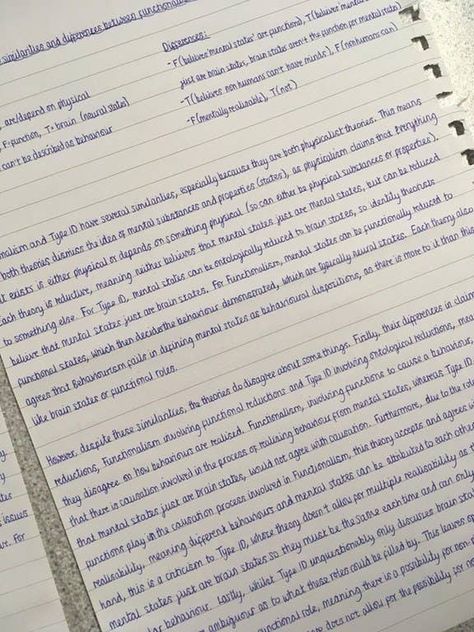 similarities and differences between functionalis
Differences:
- F (believes mental states are functions), T (believes mental
just are brain states, brain states aren't the function for mental states)
- T (believes non humans can't have minds), F (non humans can)
- F (mentally realisable), T (not)
are/depend on physical
F = function, T = brain (neural states)
can't be described as behaviour
nalism and Type ID have several similarities, especially because they are both physicalist theories. This means
both theories dismiss the idea of mental substances and properties (states), as physicalism claims that everything
t exists is either physical or depends on something physical (so can either be physical substances or properties).
Each theory is reductive, meaning neither believes that mental states just are mental states, but can be reduced
to something else. For Type ID, mental states can be ontologically reduced to brain states, so identity theorists
believe that mental states just are brain states. For Functionalism, mental states can be functionally reduced to
functional states, which then decides the behaviour demonstrated, which are typically neural states. Each theory also
agrees that Behaviourism fails in defining mental states as behavioural dispositions, as there is more to it than this
like brain states or functional roles.
However, despite these similarities, the theories do disagree about some things. Firstly, their differences in
reductions, Functionalism involving functional reductions and Type ID involving ontological reductions, mea
they disagree on how behaviours are realised. Functionalism, involving functions to cause a behaviour,
that there is causation involved in the process of realising behaviour from mental states, whereas Type ID
that mental states just are brain states, would not agree with causation. Furthermore, due to the
functions play in the causation process involved in Functionalism, this theory accepts and agrees
realisability, meaning different behaviours and mental states can be attributed to each othe
hand, this is a criticism to Type ID, where theory doesn't allow for multiple realisability as
mental states just are brain states so they must be the same each time and can on
lar behaviour. Lastly, whilst Type ID unquestionably only discusses brain s
ambiguous as to what these roles could be filled by. This leaves
functional role, meaning there is a possibility for non
does not allow for the possibility for
issues
. For